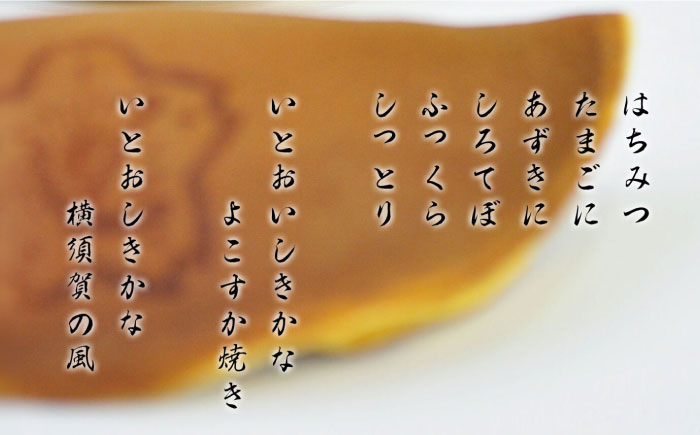 はちみつ
たまごに
あずきに
しろてぼ
ふっくら
しっとり
いとおいしきかな
よこすか焼き
いとおしきかな
横須賀の風